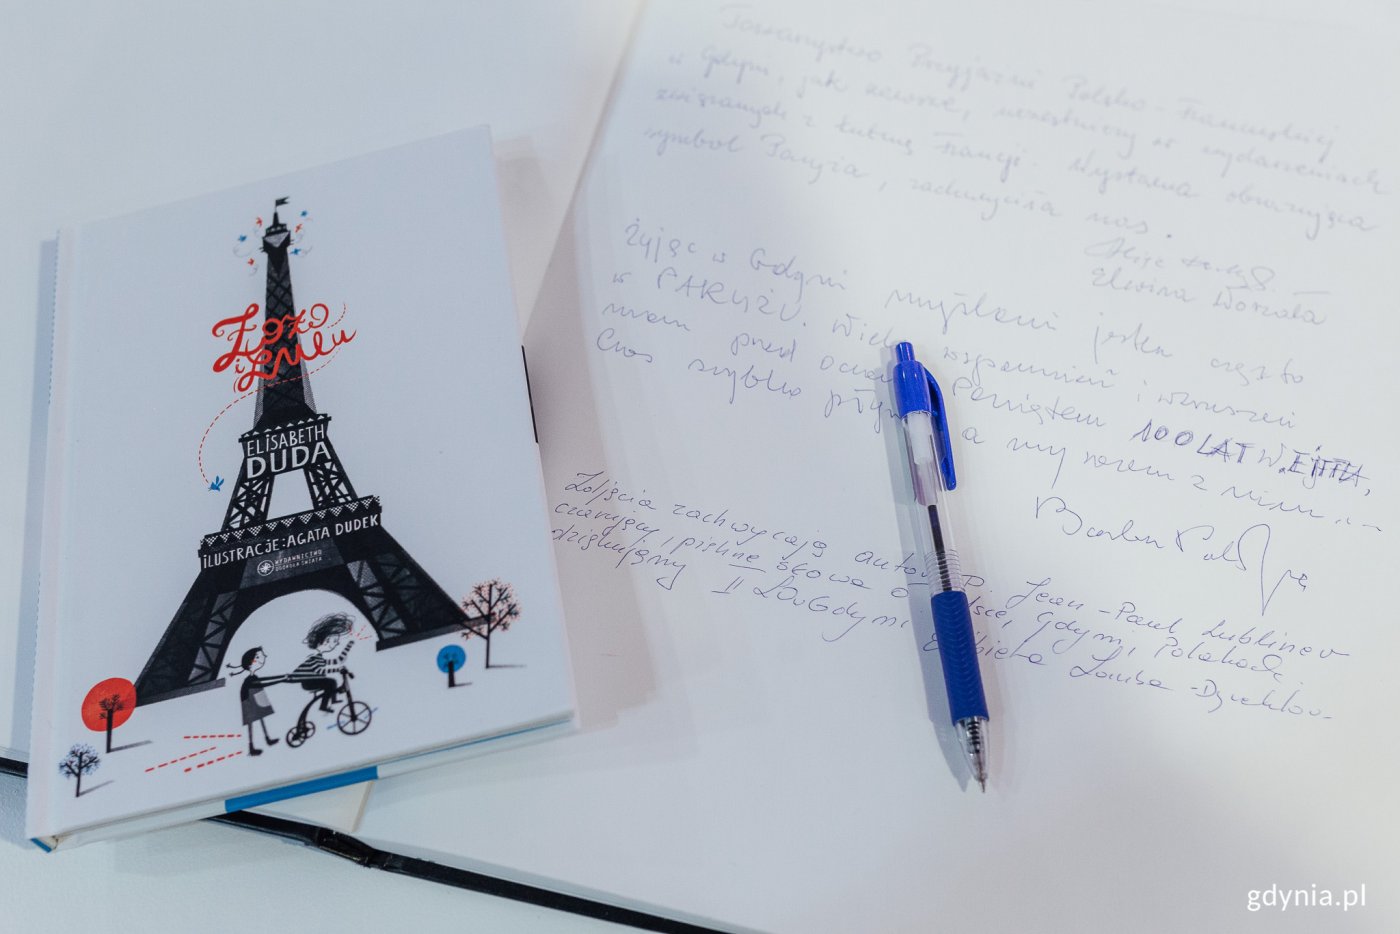 Zozo
i Lulu
ELISABETH
DUDA
ILUSTRACJE: AGATA DUDEK
WYDAWNICTWO
DOOKOŁA ŚWIATA
Towarzystwo Przyjaźni Polsko-Francuskiej
w Gdyni, jak zawsze, uczestniczy w wydarzeniach
związanych z kulturą Francji. Wystawa obrazująca
symbol Paryża, zachwyciła nas.
Elwira Worzała
Żyjąc w Gdyni myślami jestem często
w PARYŻU. Wiele wspomnień i wzruszeń
mam przed oczami. Pamiętam 100 LAT W.
Czas szybko płynie a my razem z nim...
Zdjęcia zachwycają autor Jean-Paul Lubliner
czarujący i piękne słowa o Gdyni, Polakach.
dziękujemy II LO w Gdyni Elżbieta
gdynia.pl